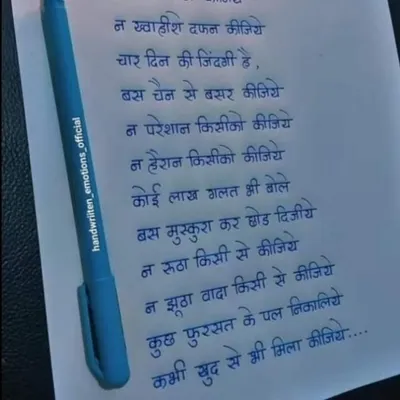 न ख्वाहीशे दफन कीजिये
चार दिन की जिंदगी है,
बस चैन से बसर कीजिये
न परेशान किसीको कीजिये
न हैरान किसीको कीजिये
कोई लाख गलत भी बोले
बस मुस्कुरा कर छोड दिजीये
न रूठा किसी से कीजिये
न झूठा वादा किसी से कीजिये
कुछ फुरसत के पल निकालिये
कभी खुद से भी मिला कीजिये....
handwriiten_emotions_official